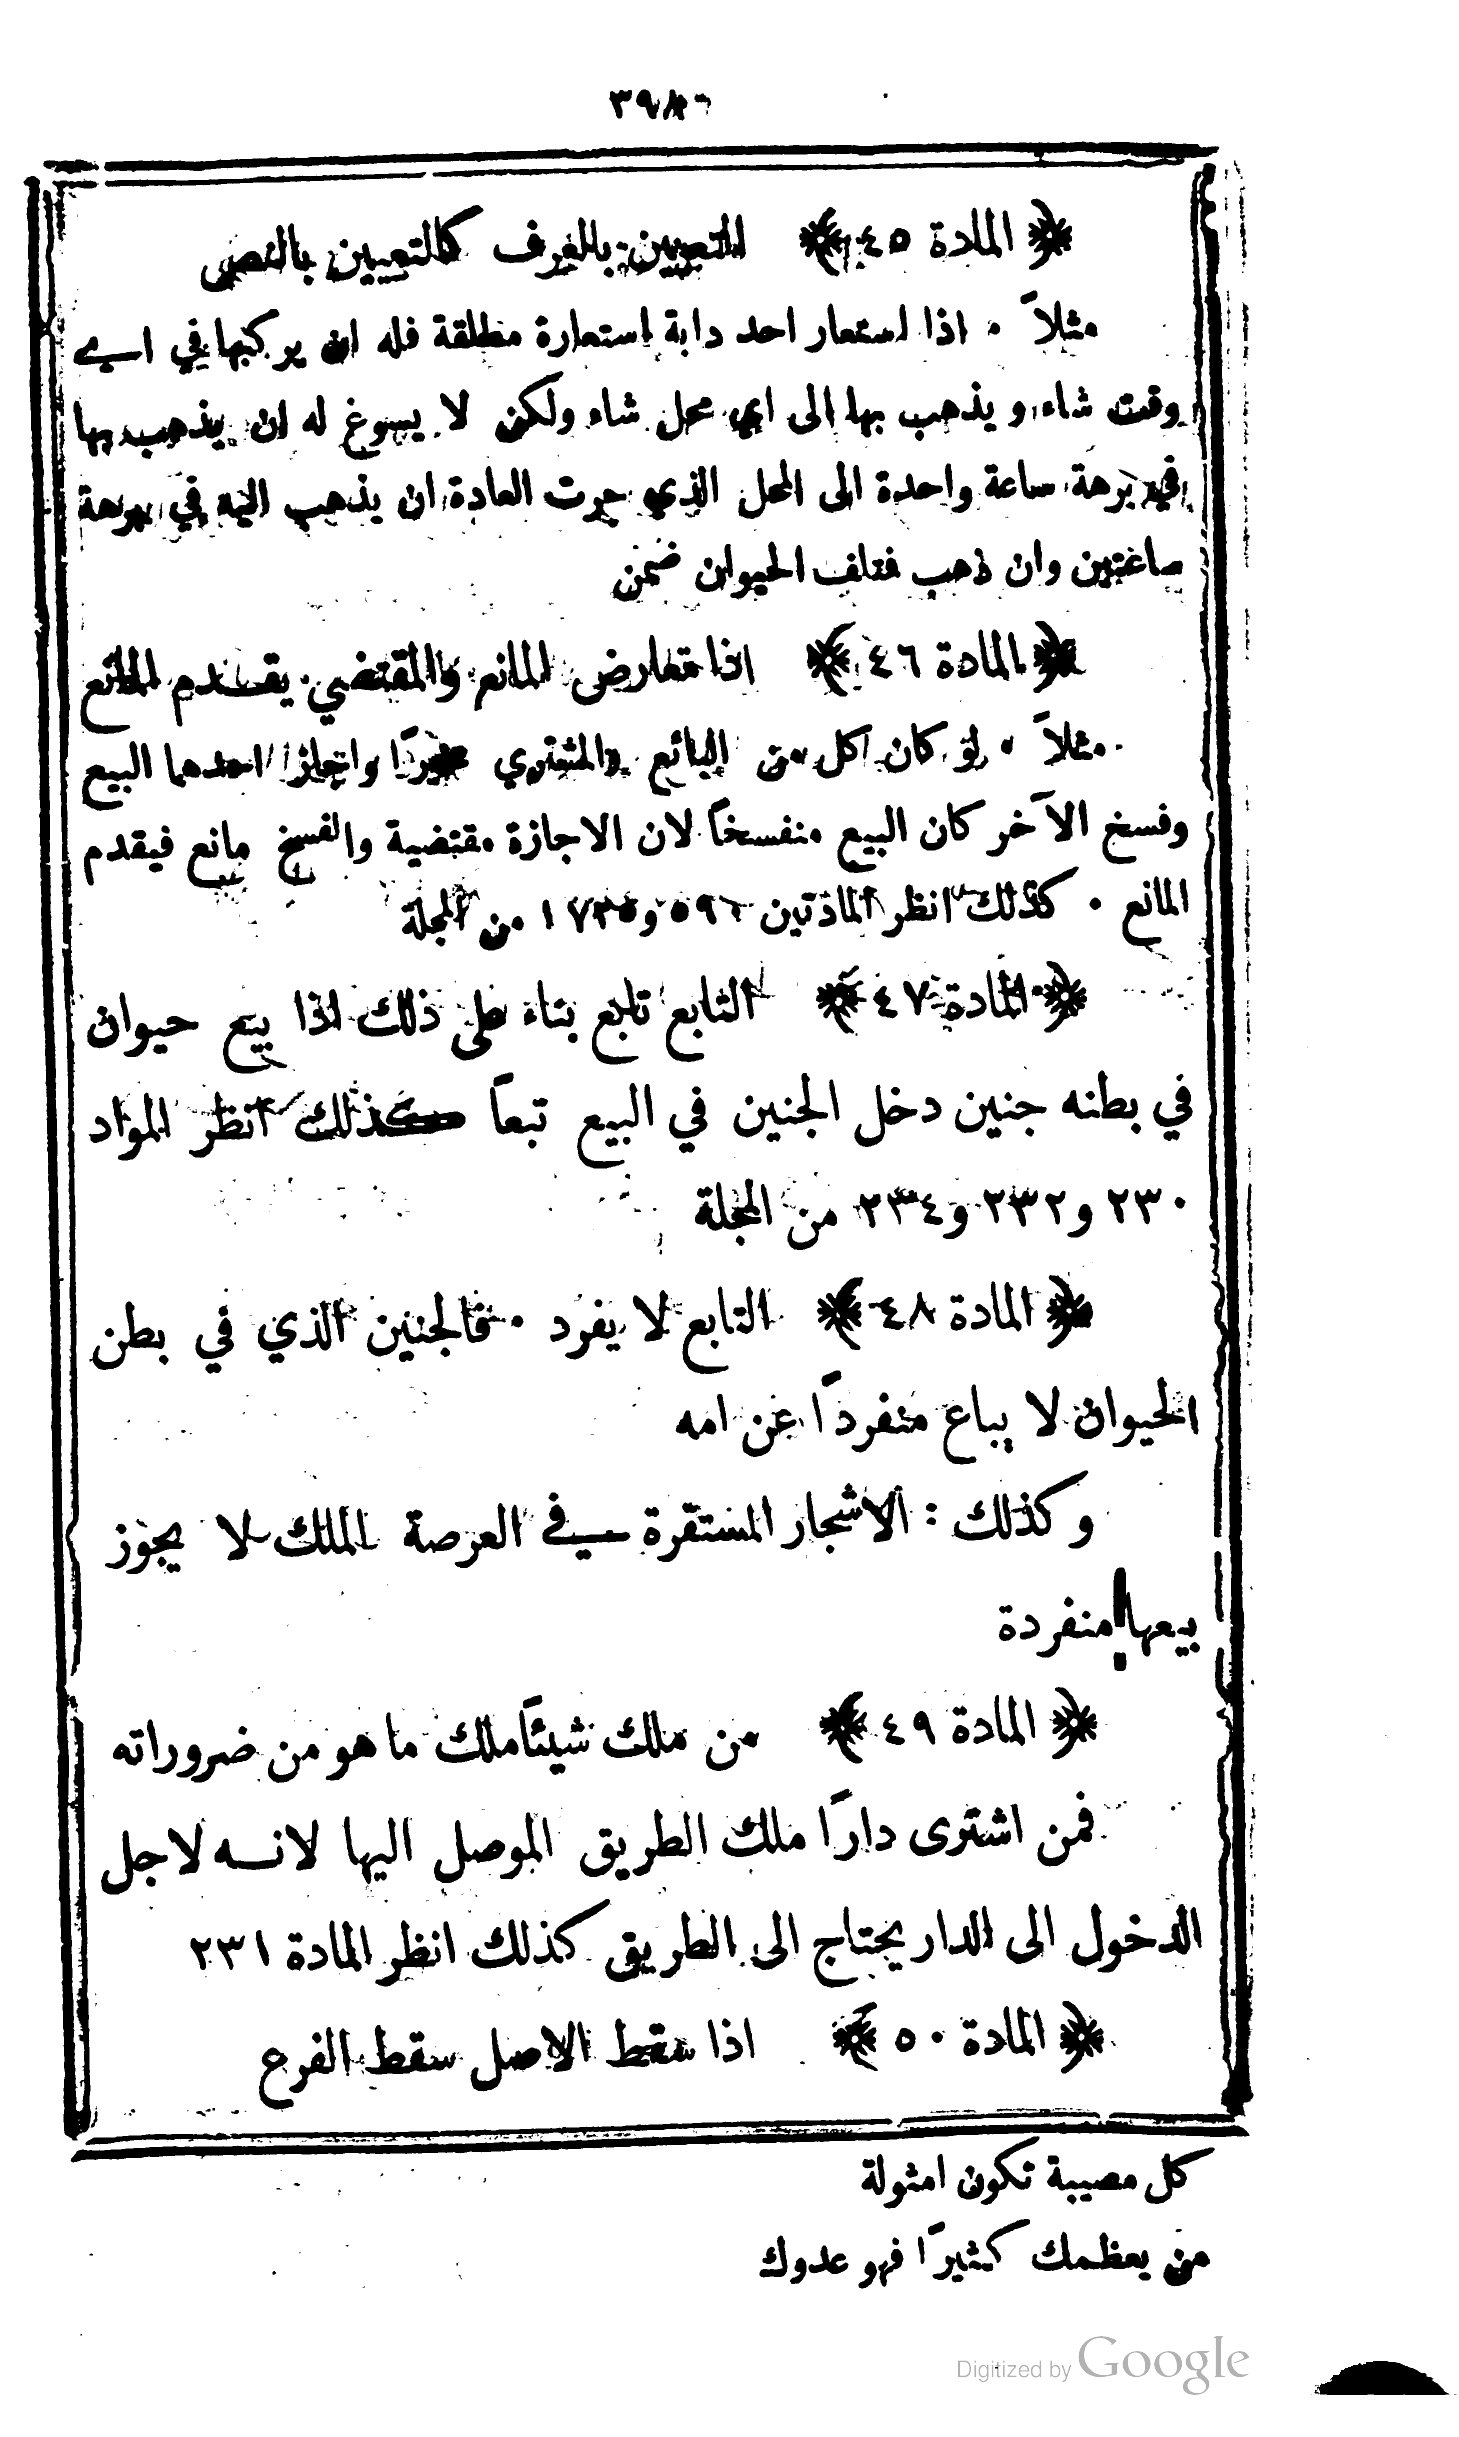 ﴿ المادة ٤٥ ﴾ التعيين بالعرف كالتعيين بالنص
مثلاً ٠ اذا استعار احد دابة استعارة مطلقة فله ان يركبها في اي
وقت شاء ويذهب بها الى اي محل شاء ولكن لا يسوغ له ان يذهب بها
في برهة ساعة واحدة الى المحل الذي جرت العادة ان يذهب اليه في برهة
ساعتين وان ذهب فتلف الحيوان ضمن
﴿ المادة ٤٦ ﴾ اذا تعارض المانع والمقتضي يقدم المانع
مثلاً ٠ لو كان كل من البائع والمشتري مخيرًا واجاز احدهما البيع
وفسخ الآخر كان البيع منفسخاً لان الاجازة مقتضية والفسخ مانع فيقدم
المانع ٠ كذلك انظر المادتين ٥٩٦ و١٧٣٥ من المجلة
﴿ المادة ٤٧ ﴾ التابع تابع بناء على ذلك اذا بيع حيوان
في بطنه جنين دخل الجنين في البيع تبعاً كذلك انظر المواد
٢٣٠ و٢٣٢ و٢٣٤ من المجلة
﴿ المادة ٤٨ ﴾ التابع لا يفرد ٠ فالجنين الذي في بطن
الحيوان لا يباع منفردًا عن امه
وكذلك : الاشجار المستقرة في العرصة الملك لا يجوز
بيعها منفردة
﴿ المادة ٤٩ ﴾ من ملك شيئاً ملك ما هو من ضروراته
فمن اشترى دارًا ملك الطريق الموصل اليها لانه لاجل
الدخول الى الدار يحتاج الى الطريق كذلك انظر المادة ٢٣١
﴿ المادة ٥٠ ﴾ اذا سقط الاصل سقط الفرع
كل مصيبة تكون امثولة
من يعظمك كثيرًا فهو عدوك
Digitized by Google